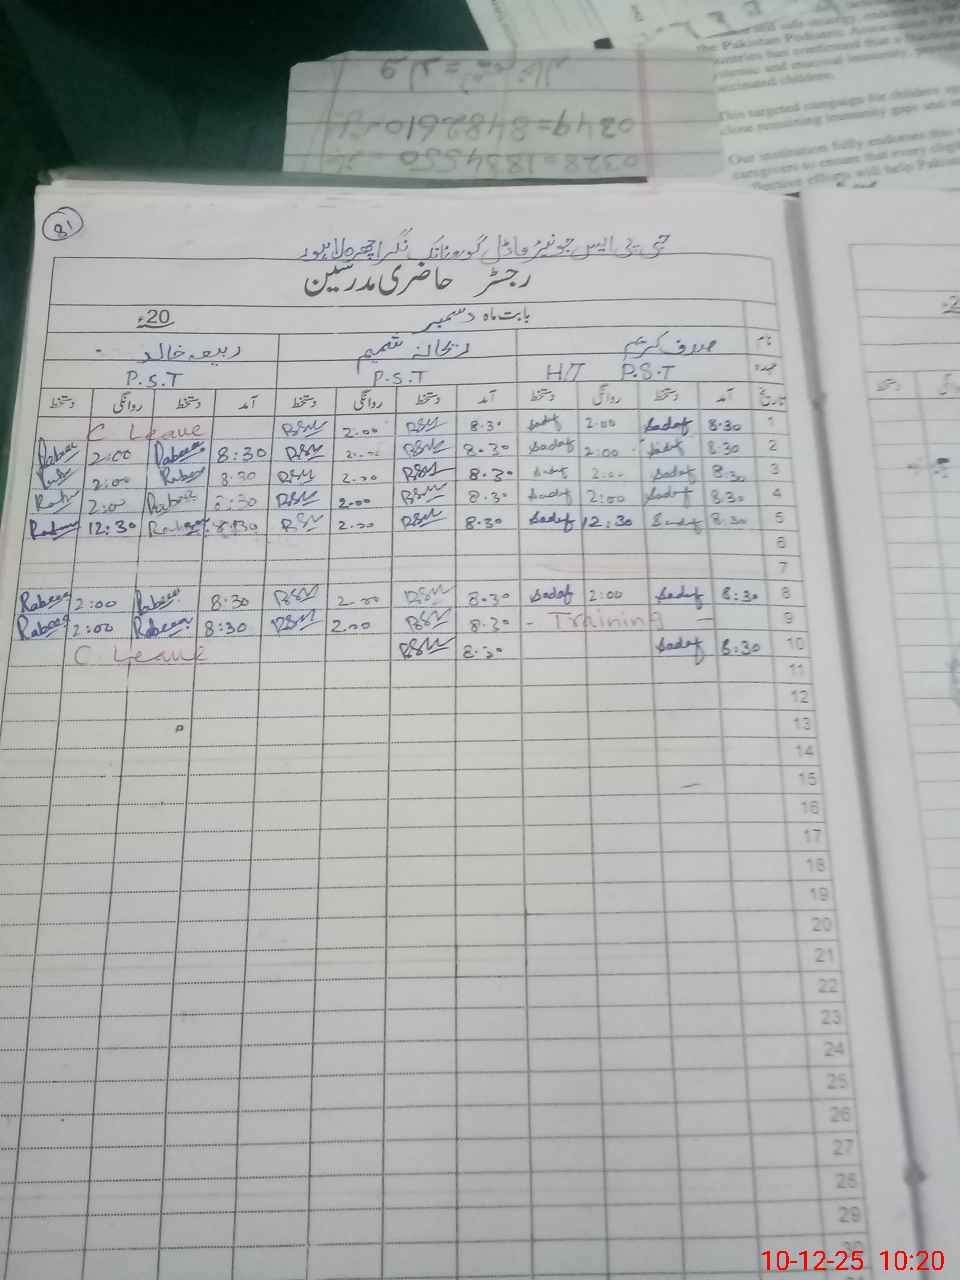 the Pakistan Pediatric Association
This targeted campaign for children
close remaining immunity gaps and
Our institution fully endorses this
caregivers to ensure that every
efforts will help Pakistan
0344=8482610
0328=1834550
81
جی پی ایس جونیئر ماڈل گورونانک نگر اچھرہ لاہور
رجسٹر حاضری مدرسین
بابت ماہ دسمبر 20ء
نام صدف کریم ریحانہ شمیم ربیعہ خالد
عہدہ P.S.T H/T P.S.T P.S.T
تاریخ آمد دستخط روانگی دستخط آمد دستخط روانگی دستخط آمد دستخط روانگی دستخط
1 8:30 Sadaf 2:00 Sadaf 8.30 RSM 2.00 RSM C. Leave
2 8:30 Sadaf 2:00 Sadaf 8.30 RSM 2.00 RSM 8:30 Rabeea 2:00 Rabeea
3 8:30 Sadaf 2:00 Sadaf 8.30 RSM 2.00 RSM 8:30 Rabeea 2:00
4 8:30 Sadaf 2:00 Sadaf 8.30 RSM 2.00 RSM 8:30 Rabeea 2:00
5 8:30 Sadaf 12:30 Sadaf 8.30 RSM 2.00 RSM 8:30 Rabeea 12:30
6
7
8 8:30 Sadaf 2:00 Sadaf 8.30 RSM 2.00 RSM 8:30 Rabeea 2:00 Rabeea
9 – Training – 8.30 RSM 2.00 RSM 8:30 Rabeea 2:00 Rabeea
10 8:30 Sadaf 8.30 RSM C. Leave
11
12
13
14
15
16
17
18
19
20
21
22
23
24
25
26
27
28
29
30
10-12-25 10:20